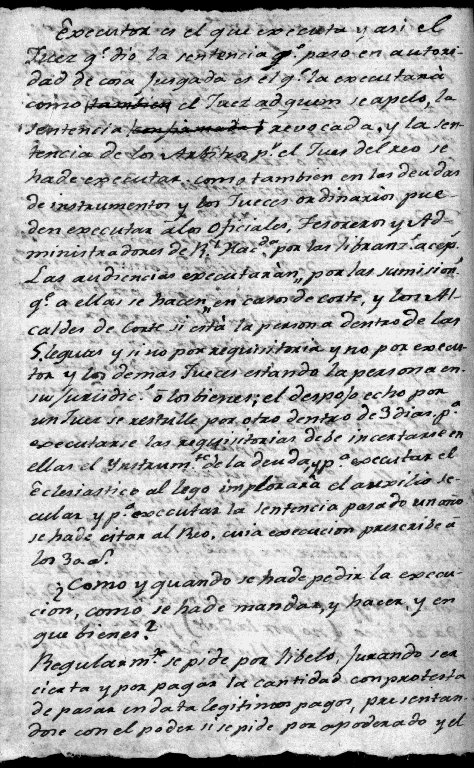 Executor es el que executa y asi el
Juez q.e dio la sentencia q.e paso en autori
dad de cosa Jusgada es el q.e la executará
como tambien el Juez ad quem se apelo, la
sentencia revocada, y la sen-
tencia de los Arbitros p.r el Jues del reo se
ha de executar como tambien en las deudas
de instrumentos y los Jueces ordinarios pue-
den executar a los Oficiales, Tesoreros y Ad-
ministradores de R.l Haz.da por las libranz.s acep.
Las audiencias executarán por las sumision.s
q.e a ellas se hacen en casos de corte, y los Al-
caldes de Corte si está la persona dentro de las
5 leguas y si no por requisitoria y no por execu-
tor y los demas Jueces estando la persona en
su Jurisdic.n ó los bienes; el despojo echo por
un Juez se restitûe por otro dentro de 3 dias, p.a
executarse las requisitorias debe incertarse en
ellas el Ynstrum.to de la deuda y p.a executar el
Eclesiastico al lego implorara el auxilio se-
cular y p.a executar la sentencia pasado un año
se ha de citar al Reo, cuia execucion prescribe a
los 30 a.s
¿Como y quando se ha de pedir la execu-
cion, como se ha de mandar, y hacer, y en
que bienes?
Regularm.te se pide por libelo, Jurando ser
cierta y por pagar la cantidad con protesta
de pasar en data legitimos pagos, presentan-
dose con el poder si se pide por apoderado y el